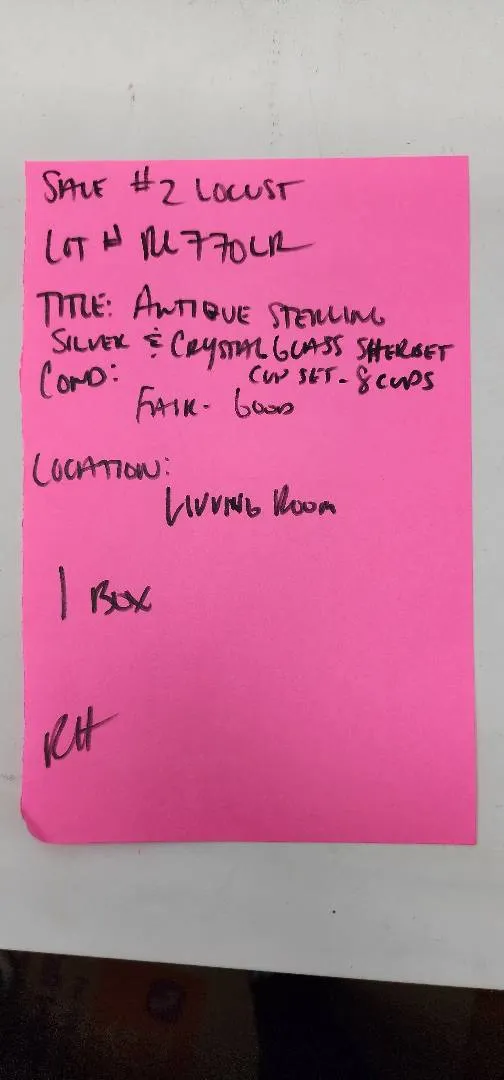 SALE #2 LOCUST
LOT # RL770LR
TITLE: ANTIQUE STERLING
SILVER & CRYSTAL GLASS SHERBET
CUP SET - 8 CUPS
COND:
FAIR - GOOD
LOCATION:
LIVVING ROOM
1 BOX
RH